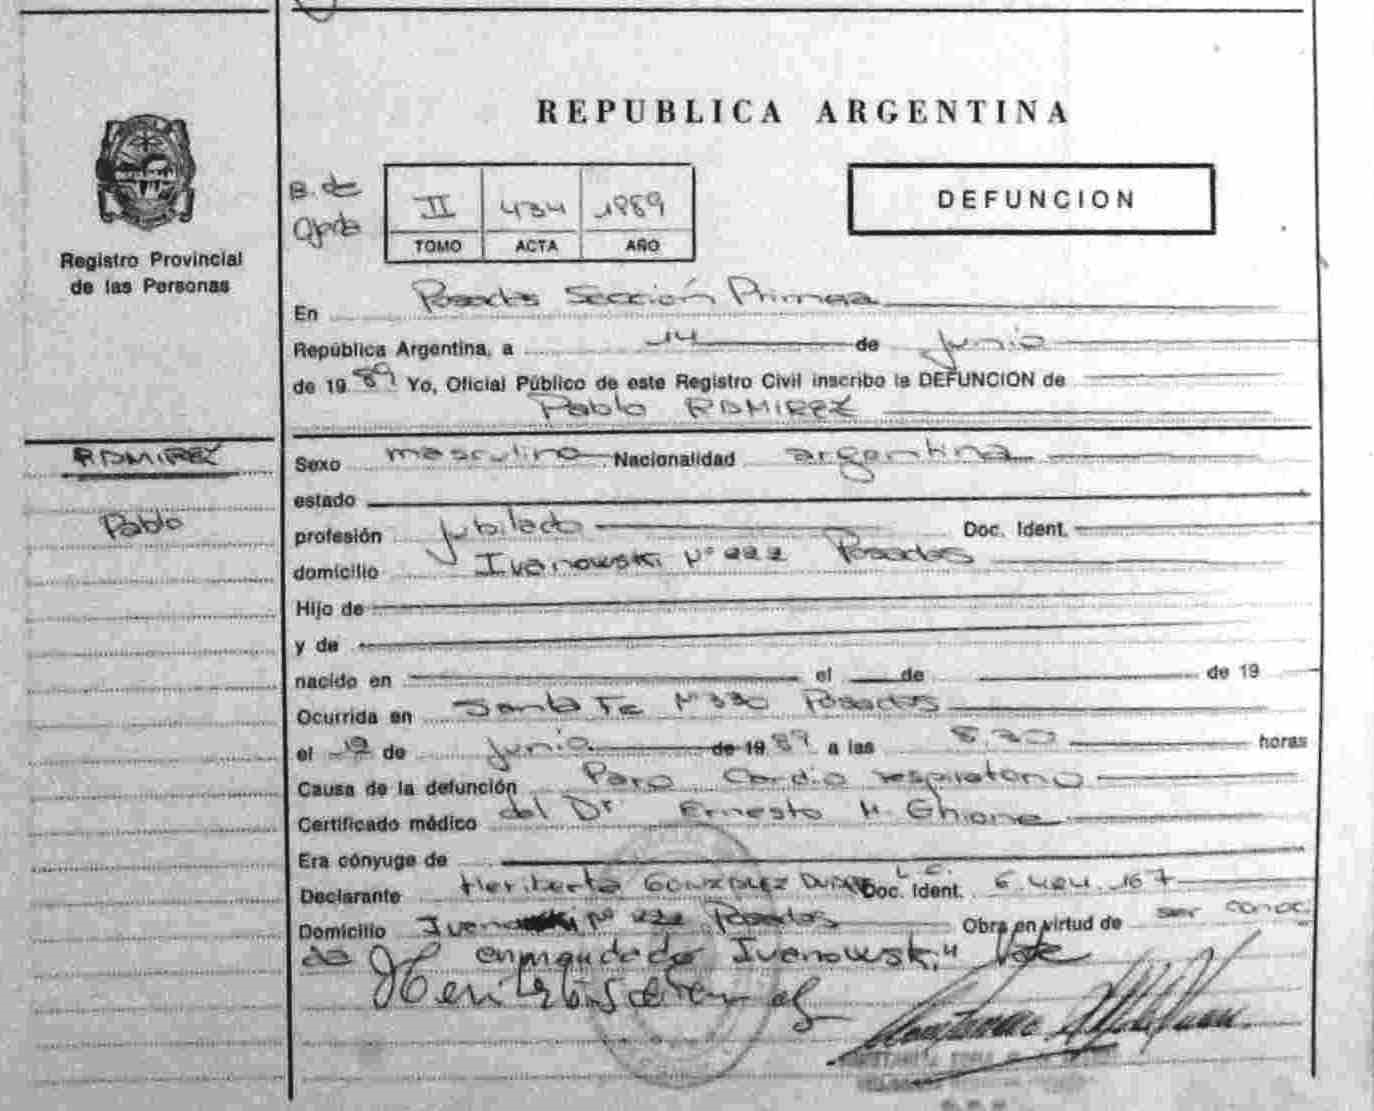 REPUBLICA ARGENTINA
B. de
II 434 1989
TOMO ACTA AÑO
DEFUNCION
Registro Provincial
de las Personas
En Posadas Sección Primera
República Argentina, a 14 de junio
de 1989 Yo, Oficial Público de este Registro Civil inscribo la DEFUNCION de
Pablo RAMIREZ
RAMIREZ
Pablo
Sexo masculino Nacionalidad argentina
estado
profesión jubilado Doc. Ident.
domicilio Ivanowski Nº 222 Posadas
Hijo de
y de
nacido en el de de 19
Ocurrida en Santa Fe Nº 330 Posadas
el de junio de 1989 a las horas
Causa de la defunción Paro Cardio respiratorio
Certificado médico del Dr Ernesto H. Ghione
Era cónyuge de
Declarante Heriberto GONZALEZ L. E. Doc. Ident. 6.484.167
Domicilio Nº 222 Posadas Obra en virtud de ser conoci
do enmendado Ivanowski" Vale